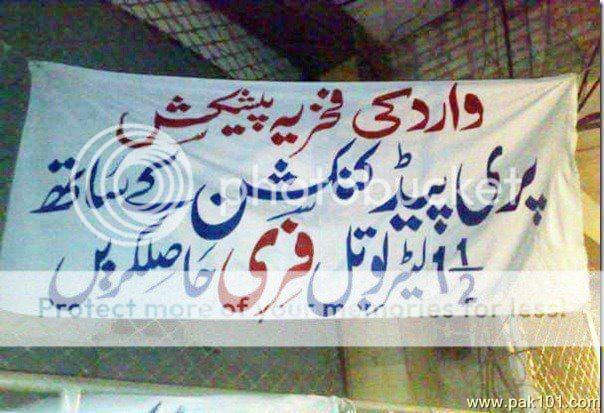 وارد کی فخریہ پیشکش
پری پیڈ کنکشن کے ساتھ
1 1/2 لیٹر بوتل فری حاصل کریں
photobucket
Protect more of your memories for less!
www.pak101.com